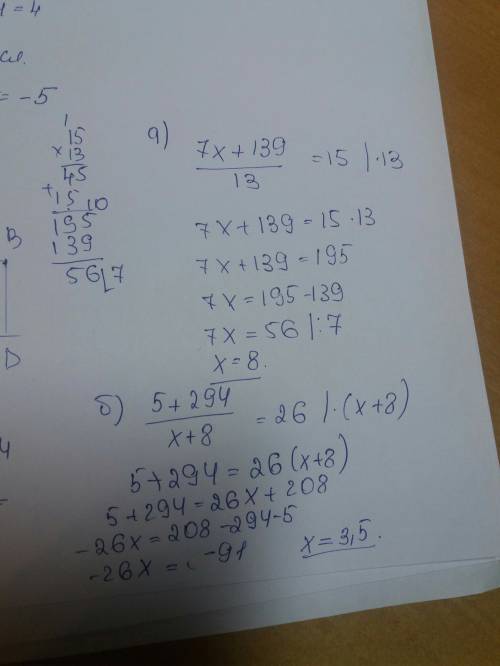 = 4
= -5
1
15
× 13
45
+ 15 10
195
139
56 7
B
D
а)
7x + 139 / 13 = 15 | · 13
7x + 139 = 15 · 13
7x + 139 = 195
7x = 195 - 139
7x = 56 | : 7
x = 8.
б)
5 + 294 / x + 8 = 26 | · (x + 8)
5 + 294 = 26 (x + 8)
5 + 294 = 26x + 208
-26x = 208 - 294 - 5
-26x = -91
x = 3,5.